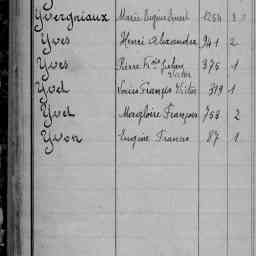 Yvergniaux Marie Eugène Ernest 1254 3
Yves Henri Alexandre 941 2
Yves Pierre Fçois Julien 376 1
Victor
Yvel Louis François Victor 319 1
Yvel Magloire François 753 2
Yvon Eugène Francis 87 1